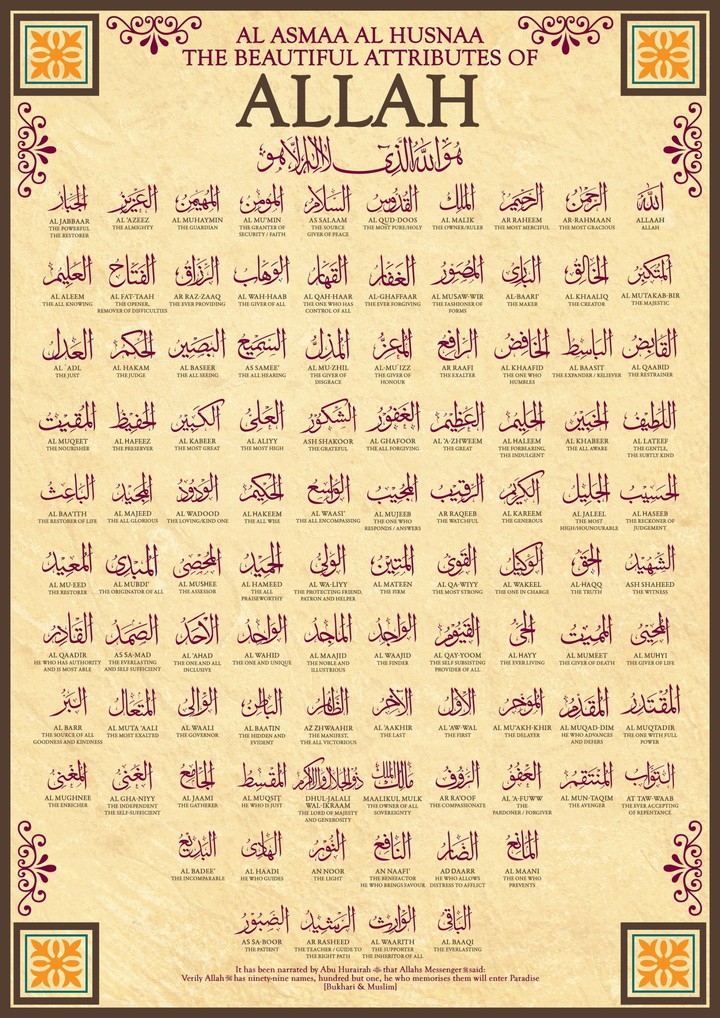 AL ASMAA AL HUSNAA
THE BEAUTIFUL ATTRIBUTES OF
ALLAH
هو الله الذي لا إله إلا هو
الله
ALLAAH
ALLAH
الرحمن
AR-RAHMAAN
THE MOST GRACIOUS
الرحيم
AR RAHEEM
THE MOST MERCIFUL
الملك
AL MALIK
THE OWNER/RULER
القدوس
AL QUD-DOOS
THE MOST PURE/HOLY
السلام
AS SALAAM
THE SOURCE
GIVER OF PEACE
المؤمن
AL MU'MIN
THE GRANTER OF
SECURITY / FAITH
المهيمن
AL MUHAYMIN
THE GUARDIAN
العزيز
AL 'AZEEZ
THE ALMIGHTY
الجبار
AL JABBAAR
THE POWERFUL
THE RESTORER
المتكبر
AL MUTAKAB-BIR
THE MAJESTIC
الخالق
AL KHAALIQ
THE CREATOR
البارئ
AL-BAARI'
THE MAKER
المصور
AL MUSAW-WIR
THE FASHIONER OF
FORMS
الغفار
AL-GHAFFAAR
THE EVER FORGIVING
القهار
AL QAH-HAAR
THE ONE WHO HAS
CONTROL OF ALL
الوهاب
AL WAH-HAAB
THE GIVER OF ALL
الرزاق
AR RAZ-ZAAQ
THE EVER PROVIDING
الفتاح
AL FAT-TAAH
THE OPENER,
REMOVER OF DIFFICULTIES
العليم
AL ALEEM
THE ALL KNOWING
القابض
AL QAABID
THE RESTRAINER
الباسط
AL BAASIT
THE EXPANDER / RELIEVER
الخافض
AL KHAAFID
THE ONE WHO
HUMBLES
الرافع
AR RAAFI
THE EXALTER
المعز
AL-MU'IZZ
THE GIVER OF
HONOUR
المذل
AL MU-ZHIL
THE GIVER OF
DISGRACE
السميع
AS SAMEE'
THE ALL HEARING
البصير
AL BASEER
THE ALL SEEING
الحكم
AL HAKAM
THE JUDGE
العدل
AL `ADL
THE JUST
اللطيف
AL LATEEF
THE GENTLE,
THE SUBTLY KIND
الخبير
AL KHABEER
THE ALL AWARE
الحليم
AL HALEEM
THE FORBEARING,
THE INDULGENT
العظيم
AL 'A-ZHWEEM
THE GREAT
الغفور
AL GHAFOOR
THE ALL FORGIVING
الشكور
ASH SHAKOOR
THE GRATEFUL
العلي
AL ALIYY
THE MOST HIGH
الكبير
AL KABEER
THE MOST GREAT
الحفيظ
AL HAFEEZ
THE PRESERVER
المقيت
AL MUQEET
THE NOURISHER
الحسيب
AL HASEEB
THE RECKONER OF
JUDGEMENT
الجليل
AL JALEEL
THE MOST
HIGH/HONOURABLE
الكريم
AL KAREEM
THE GENEROUS
الرقيب
AR RAQEEB
THE WATCHFUL
المجيب
AL MUJEEB
THE ONE WHO
RESPONDS / ANSWERS
الواسع
AL WAASI'
THE ALL ENCOMPASSING
الحكيم
AL HAKEEM
THE ALL WISE
الودود
AL WADOOD
THE LOVING/KIND ONE
المجيد
AL MAJEED
THE ALL GLORIOUS
الباعث
AL BAA'ITH
THE RESTORER OF LIFE
الشهيد
ASH SHAHEED
THE WITNESS
الحق
AL-HAQQ
THE TRUTH
الوكيل
AL WAKEEL
THE ONE IN CHARGE
القوي
AL QA-WIYY
THE MOST STRONG
المتين
AL MATEEN
THE FIRM
الولي
AL WA-LIYY
THE PROTECTING FRIEND,
PATRON AND HELPER
الحميد
AL HAMEED
THE ALL
PRAISEWORTHY
المحصي
AL MUSHEE
THE ASSESSOR
المبدئ
AL MUBDI'
THE ORIGINATOR OF ALL
المعيد
AL MU-EED
THE RESTORER
المحيي
AL MUHYI
THE GIVER OF LIFE
المميت
AL MUMEET
THE GIVER OF DEATH
الحي
AL HAYY
THE EVER LIVING
القيوم
AL QAY-YOOM
THE SELF SUBSISTING
PROVIDER OF ALL
الواجد
AL WAAJID
THE FINDER
الماجد
AL MAAJID
THE NOBLE AND
ILLUSTRIOUS
الواحد
AL WAHID
THE ONE AND UNIQUE
الأحد
AL 'AHAD
THE ONE AND ALL
INCLUSIVE
الصمد
AS SA-MAD
THE EVERLASTING
AND SELF SUFFICIENT
القادر
AL QAADIR
HE WHO HAS AUTHORITY
AND IS MOST ABLE
المقتدر
AL MUQTADIR
THE ONE WITH FULL
POWER
المقدم
AL MUQAD-DIM
HE WHO ADVANCES
AND DEFERS
المؤخر
AL MU'AKH-KHIR
THE DELAYER
الأول
AL 'AW-WAL
THE FIRST
الآخر
AL 'AAKHIR
THE LAST
الظاهر
AZ ZHWAAHIR
THE MANIFEST,
THE ALL VICTORIOUS
الباطن
AL BAATIN
THE HIDDEN AND
EVIDENT
الوالي
AL WAALI
THE GOVERNOR
المتعال
AL MUTA 'AALI
THE MOST EXALTED
البر
AL BARR
THE SOURCE OF ALL
GOODNESS AND KINDNESS
التواب
AT TAW-WAAB
THE EVER ACCEPTING
OF REPENTANCE.
المنتقم
AL MUN-TAQIM
THE AVENGER
العفو
AL 'A-FUWW
THE
PARDONER / FORGIVER
الرؤوف
AR RA'OOF
THE COMPASSIONATE
مالك الملك
MAALIKUL MULK
THE OWNER OF ALL
SOVEREIGNTY
ذو الجلال والإكرام
DHUL-JALALI
WAL-IKRAAM
THE LORD OF MAJESTY
AND GENEROSITY
المقسط
AL MUQSIT
HE WHO IS JUST
الجامع
AL JAAMI
THE GATHERER
الغني
AL GHA-NIYY
THE INDEPENDENT
THE SELF-SUFFICIENT
المغني
AL MUGHNEE
THE ENRICHER
المانع
AL MAANI
THE ONE WHO
PREVENTS
الضار
AD DAARR
HE WHO ALLOWS
DISTRESS TO AFFLICT
النافع
AN NAAFI'
THE BENEFACTOR
HE WHO BRINGS FAVOUR
النور
AN NOOR
THE LIGHT
الهادي
AL HAADI
HE WHO GUIDES
البديع
AL BADEE'
THE INCOMPARABLE
الباقي
AL BAAQI
THE EVERLASTING
الوارث
AL WAARITH
THE SUPPORTER
THE INHERITOR OF ALL
الرشيد
AR RASHEED
THE TEACHER / GUIDE TO
THE RIGHT PATH
الصبور
AS SA-BOOR
THE PATIENT
It has been narrated by Abu Hurairah that Allahs Messenger ﷺ said:
Verily Allah has ninety-nine names, hundred but one, he who memorises them will enter Paradise
[Bukhari & Muslim]